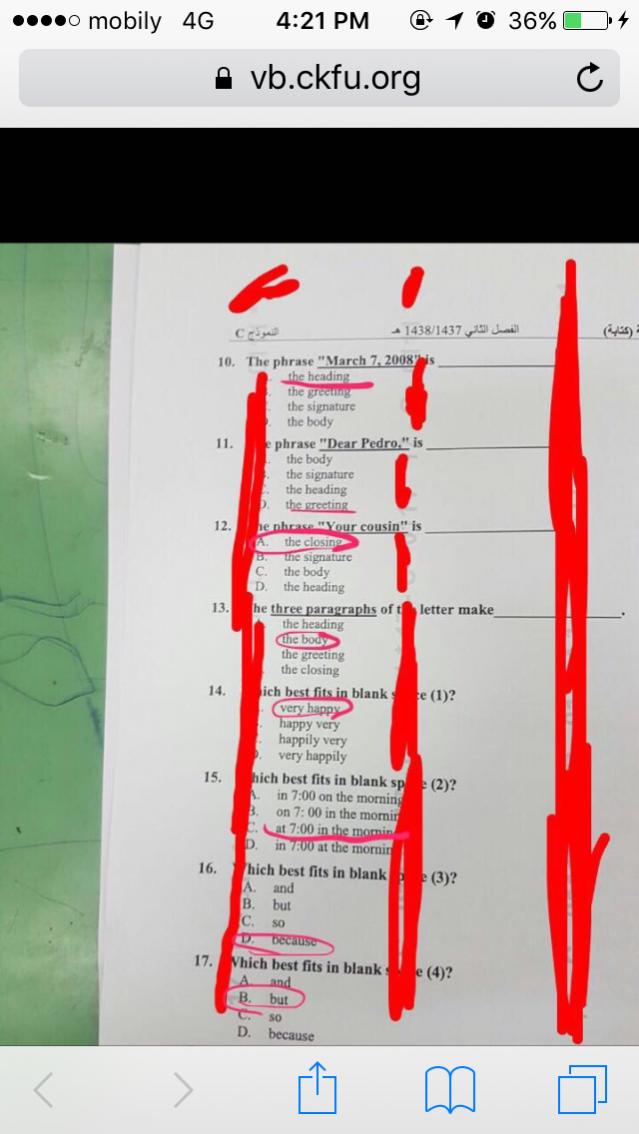 mobily 4G 4:21 PM 36%
vb.ckfu.org
النموذج C الفصل الثاني 1438/1437 هـ (كتابة)
10. The phrase "March 7, 2008" is
the heading
the greeting
the signature
the body
11. phrase "Dear Pedro," is
the body
the signature
the heading
D. the greeting
12. phrase "Your cousin" is
A. the closing
B. the signature
C. the body
D. the heading
13. three paragraphs of letter make .
the heading
the body
the greeting
the closing
14. best fits in blank (1)?
very happy
happy very
happily very
very happily
15. best fits in blank (2)?
A. in 7:00 on the morning
B. on 7: 00 in the
C. at 7:00 in the
D. in 7:00 at the
16. best fits in blank (3)?
A. and
B. but
C. so
D. because
17. Which best fits in blank (4)?
A. and
B. but
C. so
D. because